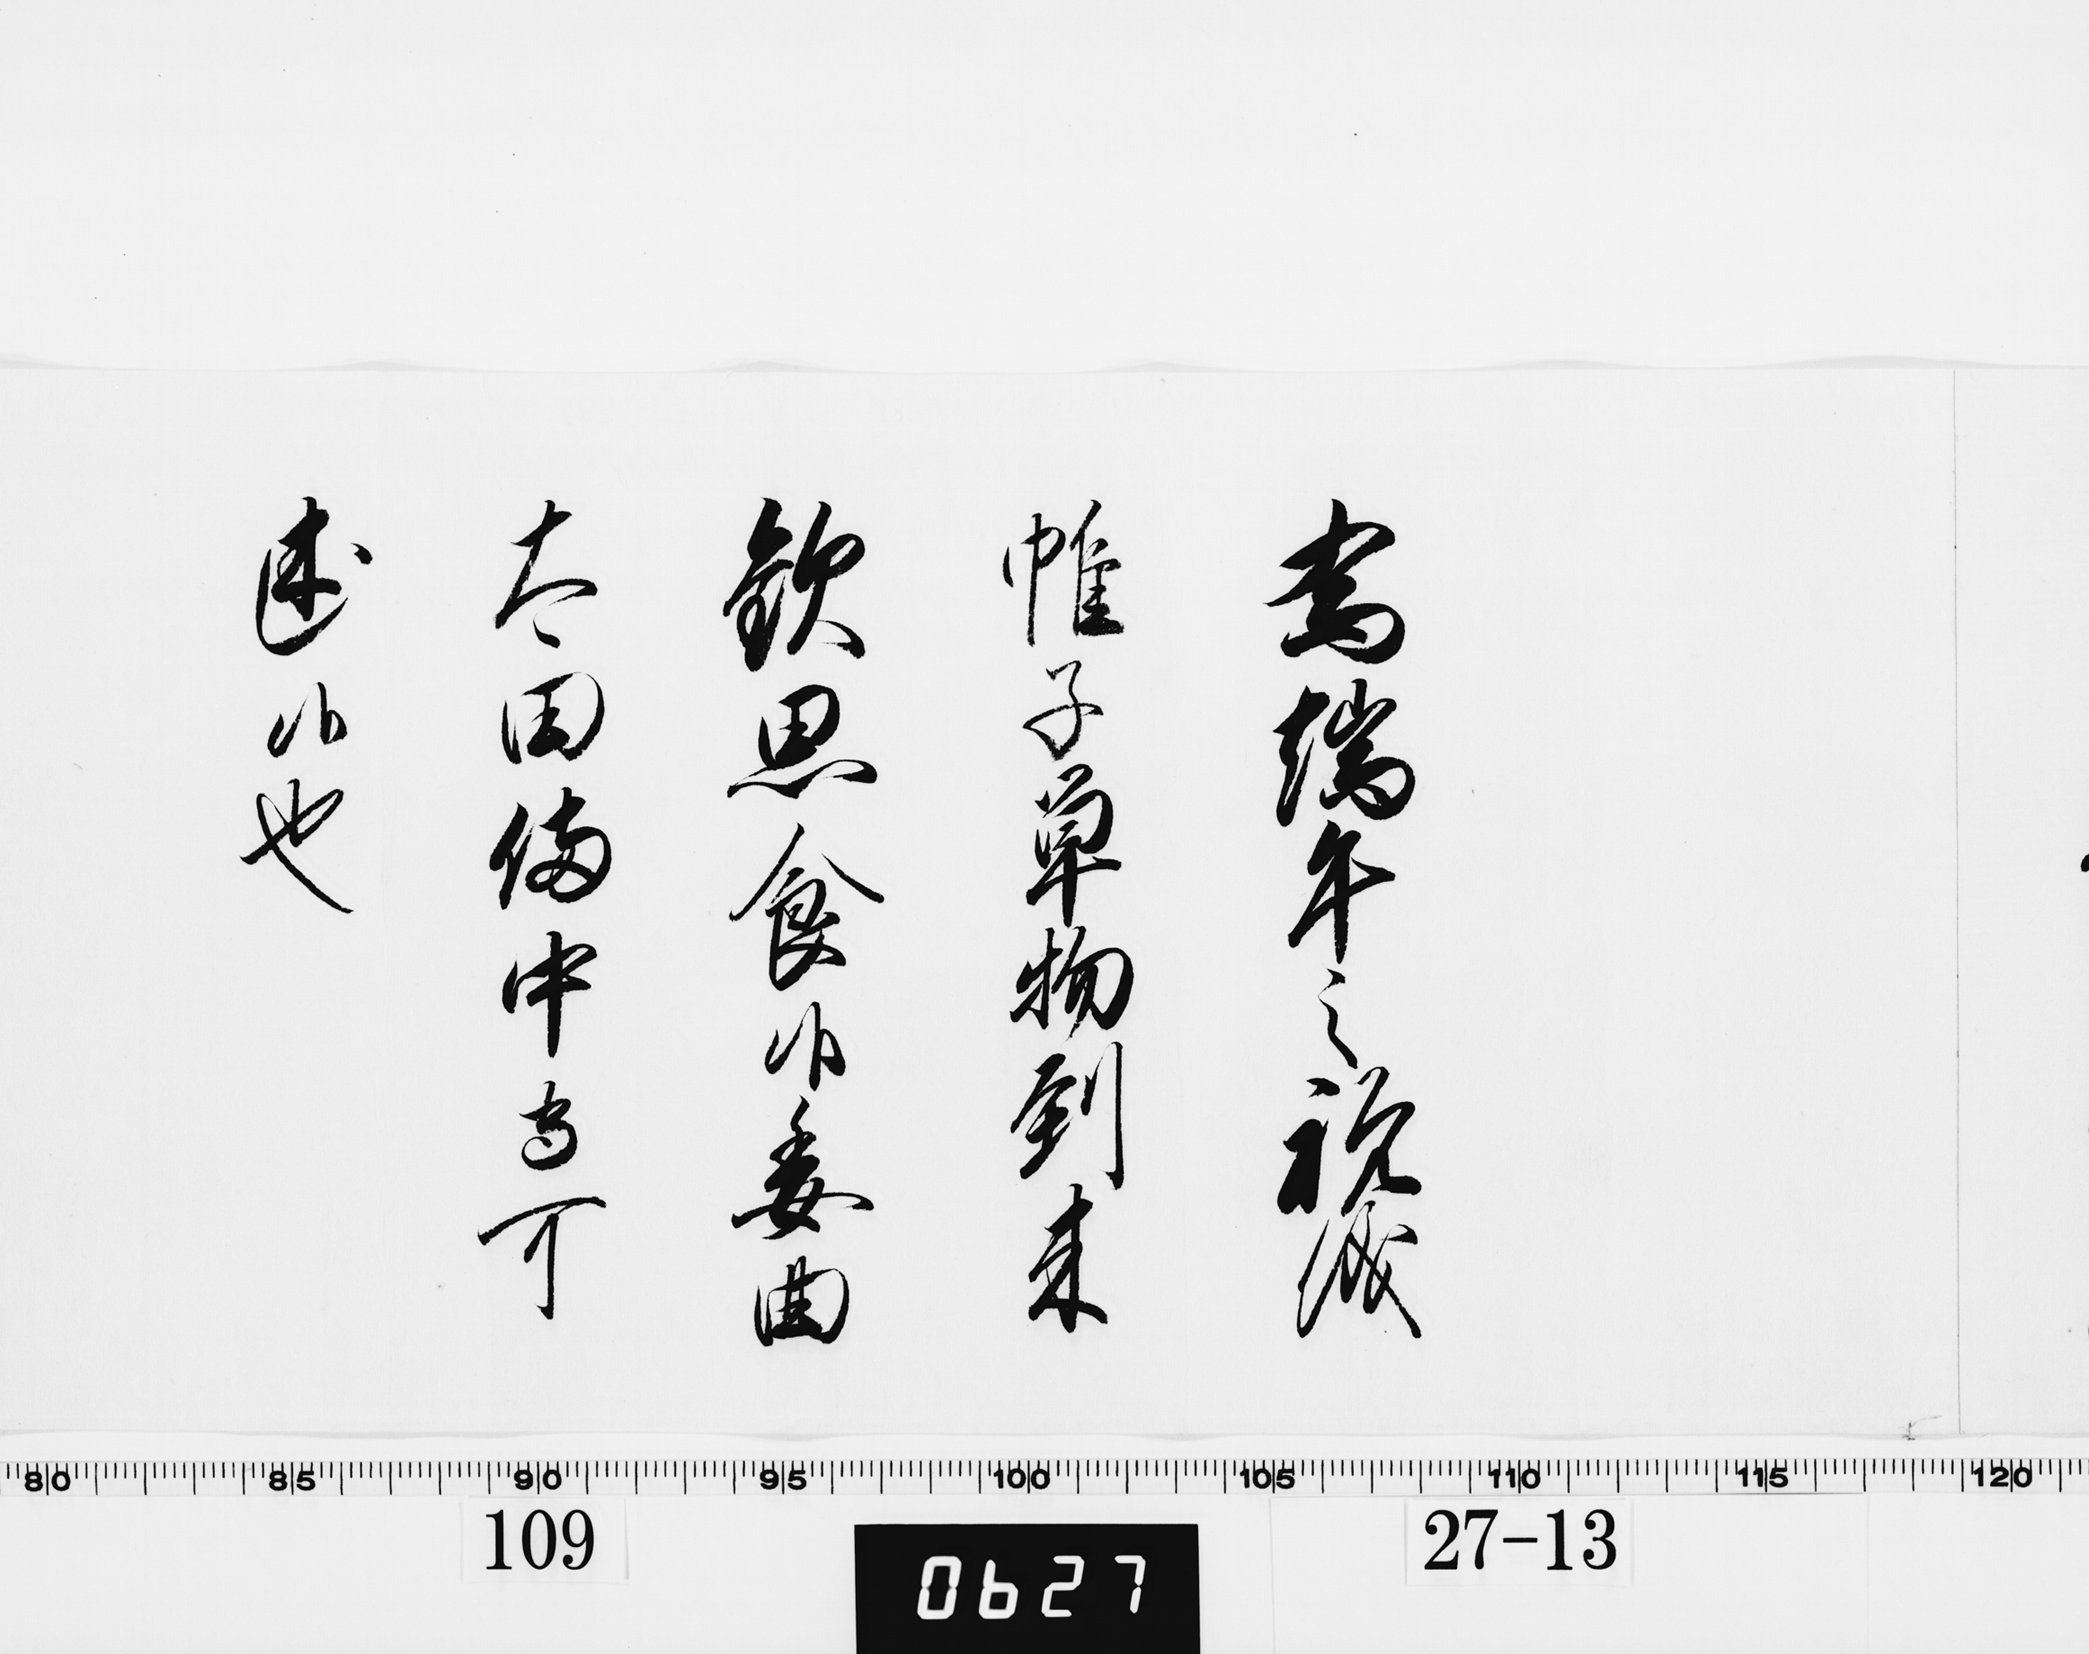 為端午之祝儀
帷子単物到来
欽思食候委曲
太田備中守可
述候也
80 85 90 95 100 105 110 115 120
109
0627
27-13